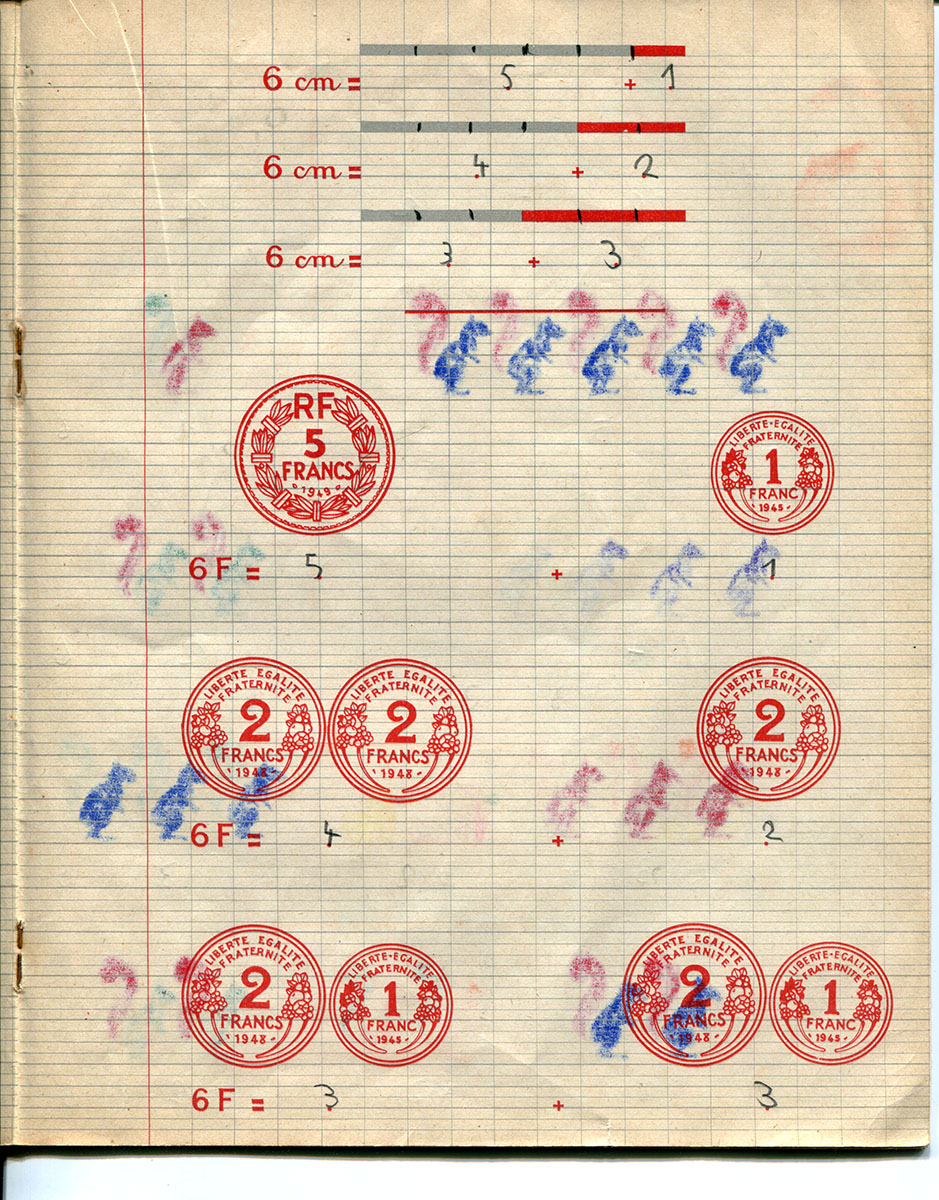 6 cm = 5 + 1
6 cm = 4 + 2
6 cm = 3 + 3
RF
5
FRANCS
1949
LIBERTE·EGALITE
FRATERNITE
1
FRANC
1945
6F = 5 + 1
LIBERTE EGALITE
FRATERNITE
2
FRANCS
1948
LIBERTE EGALITE
FRATERNITE
2
FRANCS
1948
LIBERTE EGALITE
FRATERNITE
2
FRANCS
1948
6F = 4 + 2
LIBERTE EGALITE
FRATERNITE
2
FRANCS
1948
LIBERTE·EGALITE
FRATERNITE
1
FRANC
1945
LIBERTE EGALITE
FRATERNITE
2
FRANCS
1948
LIBERTE·EGALITE
FRATERNITE
1
FRANC
1945
6F = 3 + 3